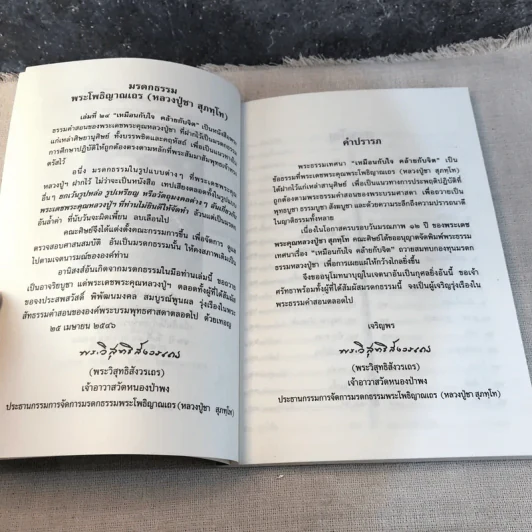 มรดกธรรม
พระโพธิญาณเถร (หลวงปู่ชา สุภทฺโท)
เล่มที่ ๒๔ "เหมือนกับใจ คล้ายกับจิต" เป็นหนังสือพระ
ธรรมคำสอนของพระเดชพระคุณหลวงปู่ชา ที่ฝากไว้เป็นมรดกธรรม
แก่เหล่าศิษยานุศิษย์ ทั้งบรรพชิตและคฤหัสถ์ เพื่อเป็นแนวทางใน
การศึกษาปฏิบัติให้ถูกต้องตรงตามหลักที่พระสัมมาสัมพุทธเจ้าทรง
ตรัสไว้
อนึ่ง มรดกธรรมในรูปแบบต่าง ๆ ที่พระเดชพระคุณ
หลวงปู่ฯ ฝากไว้ ไม่ว่าจะเป็นหนังสือ เทปเสียงตลอดทั้งในรูปแบบ
อื่นๆ ยกเว้นรูปหล่อ รูปเหรียญ หรือวัตถุมงคลต่างๆ อันเกี่ยวกับ
พระเดชพระคุณหลวงปู่ฯ ที่ท่านไม่ยินดีให้จัดทำ ล้วนแต่เป็นมรดก
อันล้ำค่า ที่นับวันจะผิดเพี้ยน ลบเลือนไป
คณะศิษย์จึงได้แต่งตั้งคณะกรรมการขึ้น เพื่อจัดการ ดูแล
ตรวจสอบศาสนสมบัติ อันเป็นมรดกนั้น ให้คงสภาพเดิมเป็น
ไปตามเจตนารมณ์ขององค์ท่าน
อานิสงส์อันเกิดจากมรดกธรรมในมือท่านเล่มนี้ ขอถวาย
เป็นอาจริยบูชา แด่พระเดชพระคุณหลวงปู่ฯ ตลอดทั้งผู้ที่ได้สัมผัส
ขอจงประสพสวัสดิ์ พิพัฒนมงคล สมบูรณ์พูนผล รุ่งเรืองในพระ
สัทธรรมคำสอนขององค์พระบรมพุทธศาสดาตลอดไป ด้วยเทอญ
๒๕ เมษายน ๒๕๔๖
พระวิสุทธิสังวรเถร
(พระวิสุทธิสังวรเถร)
เจ้าอาวาสวัดหนองป่าพง
ประธานกรรมการจัดการมรดกธรรมพระโพธิญาณเถร (หลวงปู่ชา สุภทฺโท)
คำปรารภ
พระธรรมเทศนา "เหมือนกับใจ คล้ายกับจิต" เป็น
ข้อธรรมที่พระเดชพระคุณพระโพธิญาณเถร (หลวงปู่ชา สุภทฺโท)
ได้ฝากไว้แก่เหล่าสานุศิษย์ เพื่อเป็นแนวทางการประพฤติปฏิบัติที่
ถูกต้องตามพระธรรมคำสอนของพระบรมศาสดา เพื่อถวายเป็น
พุทธบูชา ธรรมบูชา สังฆบูชา และด้วยความระลึกถึงความปรารถนาดี
ในญาติธรรมทั้งหลาย
เนื่องในโอกาสครบรอบวันมรณภาพ ๑๒ ปี ของพระเดช
พระคุณหลวงปู่ชา สุภทฺโท คณะศิษย์ได้ขออนุญาตจัดพิมพ์พระธรรม
เทศนาเรื่อง "เหมือนกับใจ คล้ายกับจิต" ถวายสมทบกองทุนมรดก
ธรรมหลวงปู่ชา เพื่อการเผยแผ่ให้กว้างไกลยิ่งขึ้น
จึงขออนุโมทนาบุญในเจตนาอันเป็นกุศลยิ่งอันนี้ ขอเจ้า
ศรัทธาพร้อมทั้งผู้ที่ได้สัมผัสมรดกธรรมนี้ จงเป็นผู้เจริญรุ่งเรืองใน
พระธรรมคำสอนตลอดไป
เจริญพร
พระวิสุทธิสังวรเถร
(พระวิสุทธิสังวรเถร)
เจ้าอาวาสวัดหนองป่าพง
ประธานกรรมการจัดการมรดกธรรมพระโพธิญาณเถร (หลวงปู่ชา สุภทฺโท)